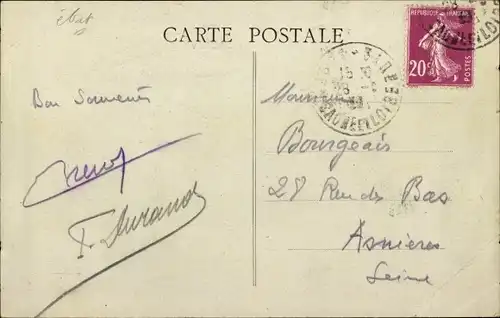 état
CARTE POSTALE
REPUBLIQUE FRANÇAISE
20c
POSTES
SAONE-ET-LOIRE
Bon Souvenir
F. Durand
Monsieur
Bourgeais
28 Rue des Bas
Asnières
Seine